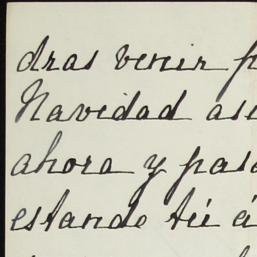 dras venir p
Navidad as
ahora y pas
estando tú á